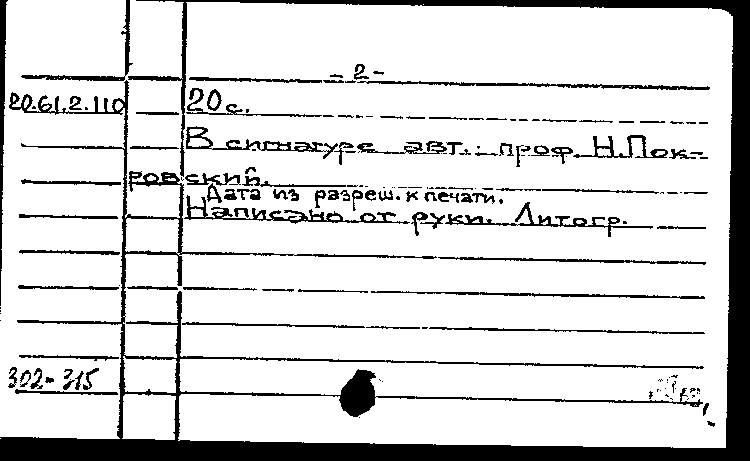 - 2 -
20.61.2.110 20 с.
В сигнатуре авт.: проф. Н.Пок-
ровский.
Дата из разреш. к печати.
Написано от руки. Литогр.
302-315